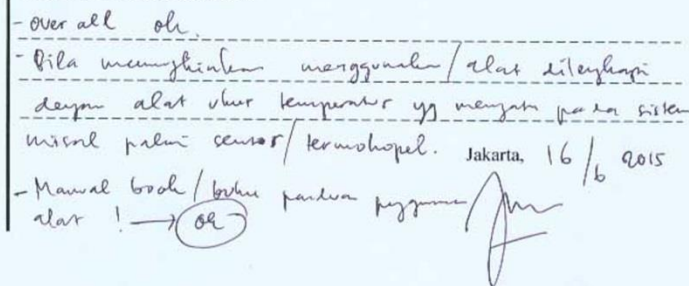 - over all ok.
- Bila memungkinkan menggunakan / alat dilengkapi
dengan alat ukur temperatur yg menyatu pada sistem
misal pakai sensor / termokopel. Jakarta, 16/6 2015
- Manual book / buku panduan penggunaan
alat ! → ok